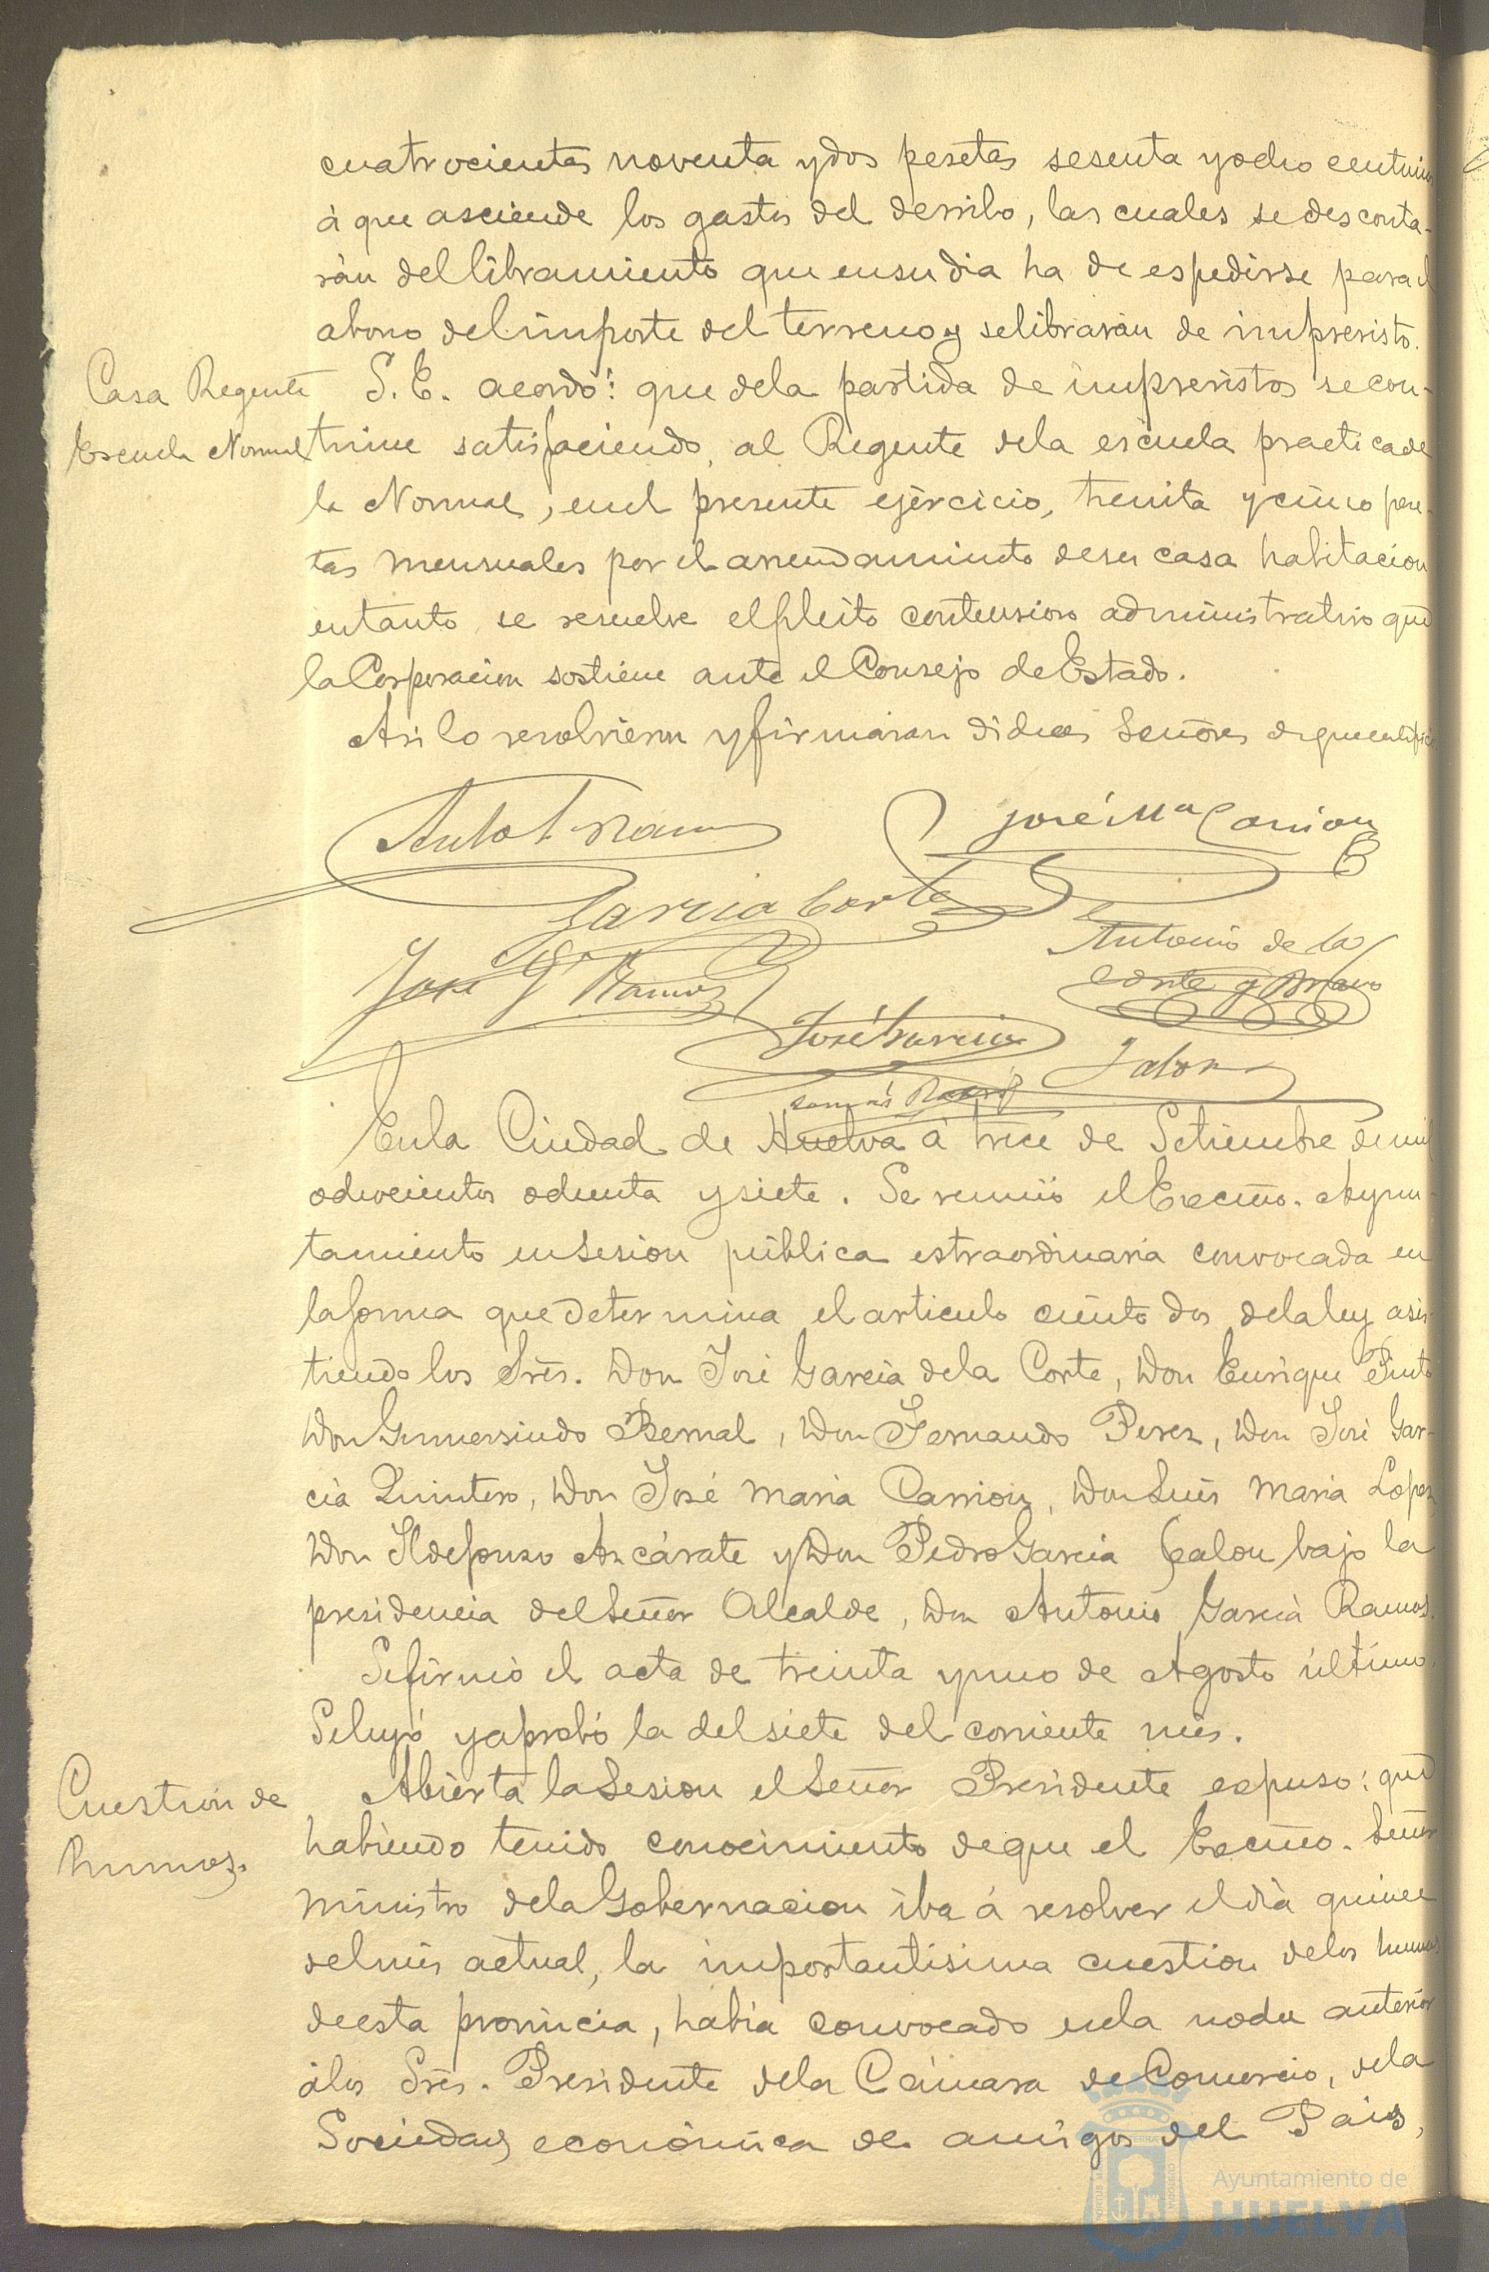 cuatrocientas noventa y dos pesetas sesenta y ocho centimos
á que asciende los gastos del derribo, las cuales se desconta-
rán del libramiento que en su dia ha de espedirse para el
abono del importe del terreno y se librarán de imprevisto.
Casa Regente
Escuela Normal
S. E. acordó: que de la partida de imprevistos se con-
tinue satisfaciendo, al Regente de la escuela practica de
la Normal, en el presente ejercicio, treinta y cinco pese-
tas mensuales por el arrendamiento de su casa habitacion
en tanto se resuelve el pleito contensioso administrativo que
la Corporacion sostiene ante el Consejo de Estado.
Asi lo resolvieron y firmaran dichos Señores de que certifico
Antº G Ramos
José Mª Carrion
Garcia Corte
José Gª Ramos
Antonio de la
Corte y Bravo
José Garcia
Jalon
En la Ciudad de Huelva á trece de Setiembre de mil
ochocientos ochenta y siete. Se reunió el Excmo. Ayun-
tamiento en Sesion pública estraordinaria convocada en
la forma que determina el articulo ciento dos de la ley asis-
tiendo los Sres. Don José Garcia de la Corte, Don Enrique Pinto
Don Gumersindo Bernal, Don Fernando Perez, Don José Gar-
cia Quintero, Don José Maria Carrion, Don Luis Maria Lopez
Don Ildefonso Azcárate y Don Pedro Garcia Jalon bajo la
presidencia del Señor Alcalde, Don Antonio Garcia Ramos.
Se firmó el acta de treinta y uno de Agosto último.
Se leyó y aprobó la del siete del corriente mes.
Cuestion de
humos.
Abierta la Sesion el Señor Presidente espuso: que
habiendo tenido conocimiento de que el Excmo. Señor
Ministro de la Gobernacion iba á resolver el dia quince
del mes actual, la importantisima cuestion de los humos
de esta provincia, habia convocado en la noche anterior
á los Sres. Presidente de la Cámara de Comercio, de la
Sociedad económica de amigos del Pais,
Ayuntamiento de
HUELVA